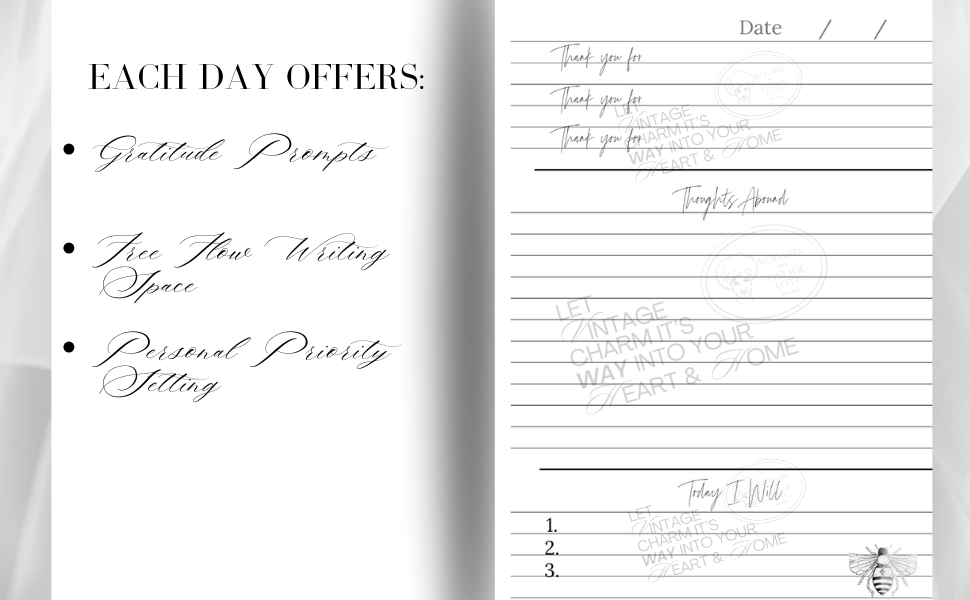 EACH DAY OFFERS:
Gratitude Prompts
Free Flow Writing
Space
Personal Priority
Setting
Date / /
Thank you for
Thank you for
Thank you for
LET
VINTAGE
CHARM IT'S
WAY INTO YOUR
HEART & HOME
Thoughts Abound
LET
VINTAGE
CHARM IT'S
WAY INTO YOUR
HEART & HOME
Today I Will
1.
2.
3.
LET
VINTAGE
CHARM IT'S
WAY INTO YOUR
HEART & HOME